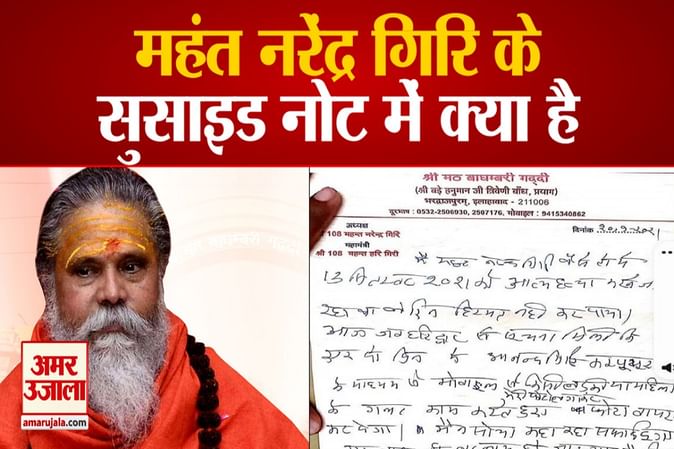 महंत नरेंद्र गिरि के
सुसाइड नोट में क्या है
श्री मठ बाघम्बरी गद्दी
(श्री बड़े हनुमान जी त्रिवेणी बाँध, प्रयाग)
भरद्वाजपुरम्, इलाहाबाद - 211006
दूरभाष : 0532-2506930, 2507176, मोबाईल : 9415340862
अध्यक्ष
श्री 108 महन्त नरेन्द्र गिरि
महामंत्री
श्री 108 महन्त हरि गिरी
दिनांक
मै महन्त नरेन्द्र गिरि
13 सितम्बर 2021 को आत्महत्या करने जा
रहा था लेकिन हिम्मत नही कर पाया।
आज जब हरिद्वार से सूचना मिली कि
एक दो दिन में आनन्द गिरि कम्प्यूटर
के माध्यम से मोबाइल से किसी लड़की या महिला
के गलत काम करते हुए फोटो वायरल
कर देगा। मैने सोचा कहा तक सफाई दूंगा
अमर
उजाला
amarujala.com